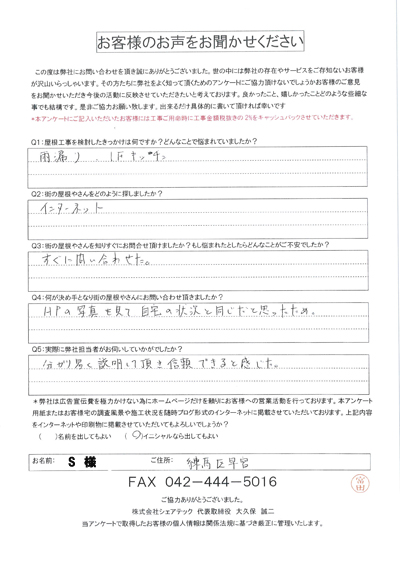 お客様のお声をお聞かせください
この度は弊社にお問い合わせを頂き誠にありがとうございました。世の中には弊社の存在やサービスをご存知ないお客様
が沢山いらっしゃいます。その方たちに弊社をよく知って頂くためのアンケートにご協力頂けないでしょうかお客様のご意見
をお聞かせいただき今後の活動に反映させていただきたいと考えております。良かったこと、嬉しかったことどのような些細な
事でも結構です。是非ご協力お願い致します。出来るだけ具体的に書いて頂ければ幸いです
*本アンケートにご記入いただいたお客様には工事ご用命時に工事金額税抜きの 2%をキャッシュバックさせていただきます。
Q1:屋根工事を検討したきっかけは何ですか?どんなことで悩まれていましたか?
雨漏り、1Fキッチン
Q2:街の屋根やさんをどのように探しましたか?
インターネット
Q3:街の屋根やさんを知りすぐにお問合せ頂けましたか?もし悩まれたとしたらどんなことがご不安でしたか?
すぐに問い合わせた。
Q4:何が決め手となり街の屋根やさんにお問い合わせ頂きましたか?
HPの写真を見て自宅の状況と同じだと思ったため。
Q5:実際に弊社担当者がお伺いしていかがでしたか?
分かり易く説明して頂き信頼できると感じた。
*弊社は広告宣伝費を極力かけない為にホームページだけを頼りにお客様への営業活動を行っております。本アンケート
用紙またはお客様宅の調査風景や施工状況を随時ブログ形式のインターネットに掲載させていただいております。上記内容
をインターネットや印刷物に掲載させていただいてもよろしいでしょうか?
( )名前を出してもよい (○)イニシャルなら出してもよい
お名前: S 様 ご住所: 練馬区早宮
FAX 042-444-5016
ご協力ありがとうございました。
株式会社シェアテック 代表取締役 大久保 誠二
当アンケートで取得したお客様の個人情報は関係法規に基づき厳正に管理いたします。